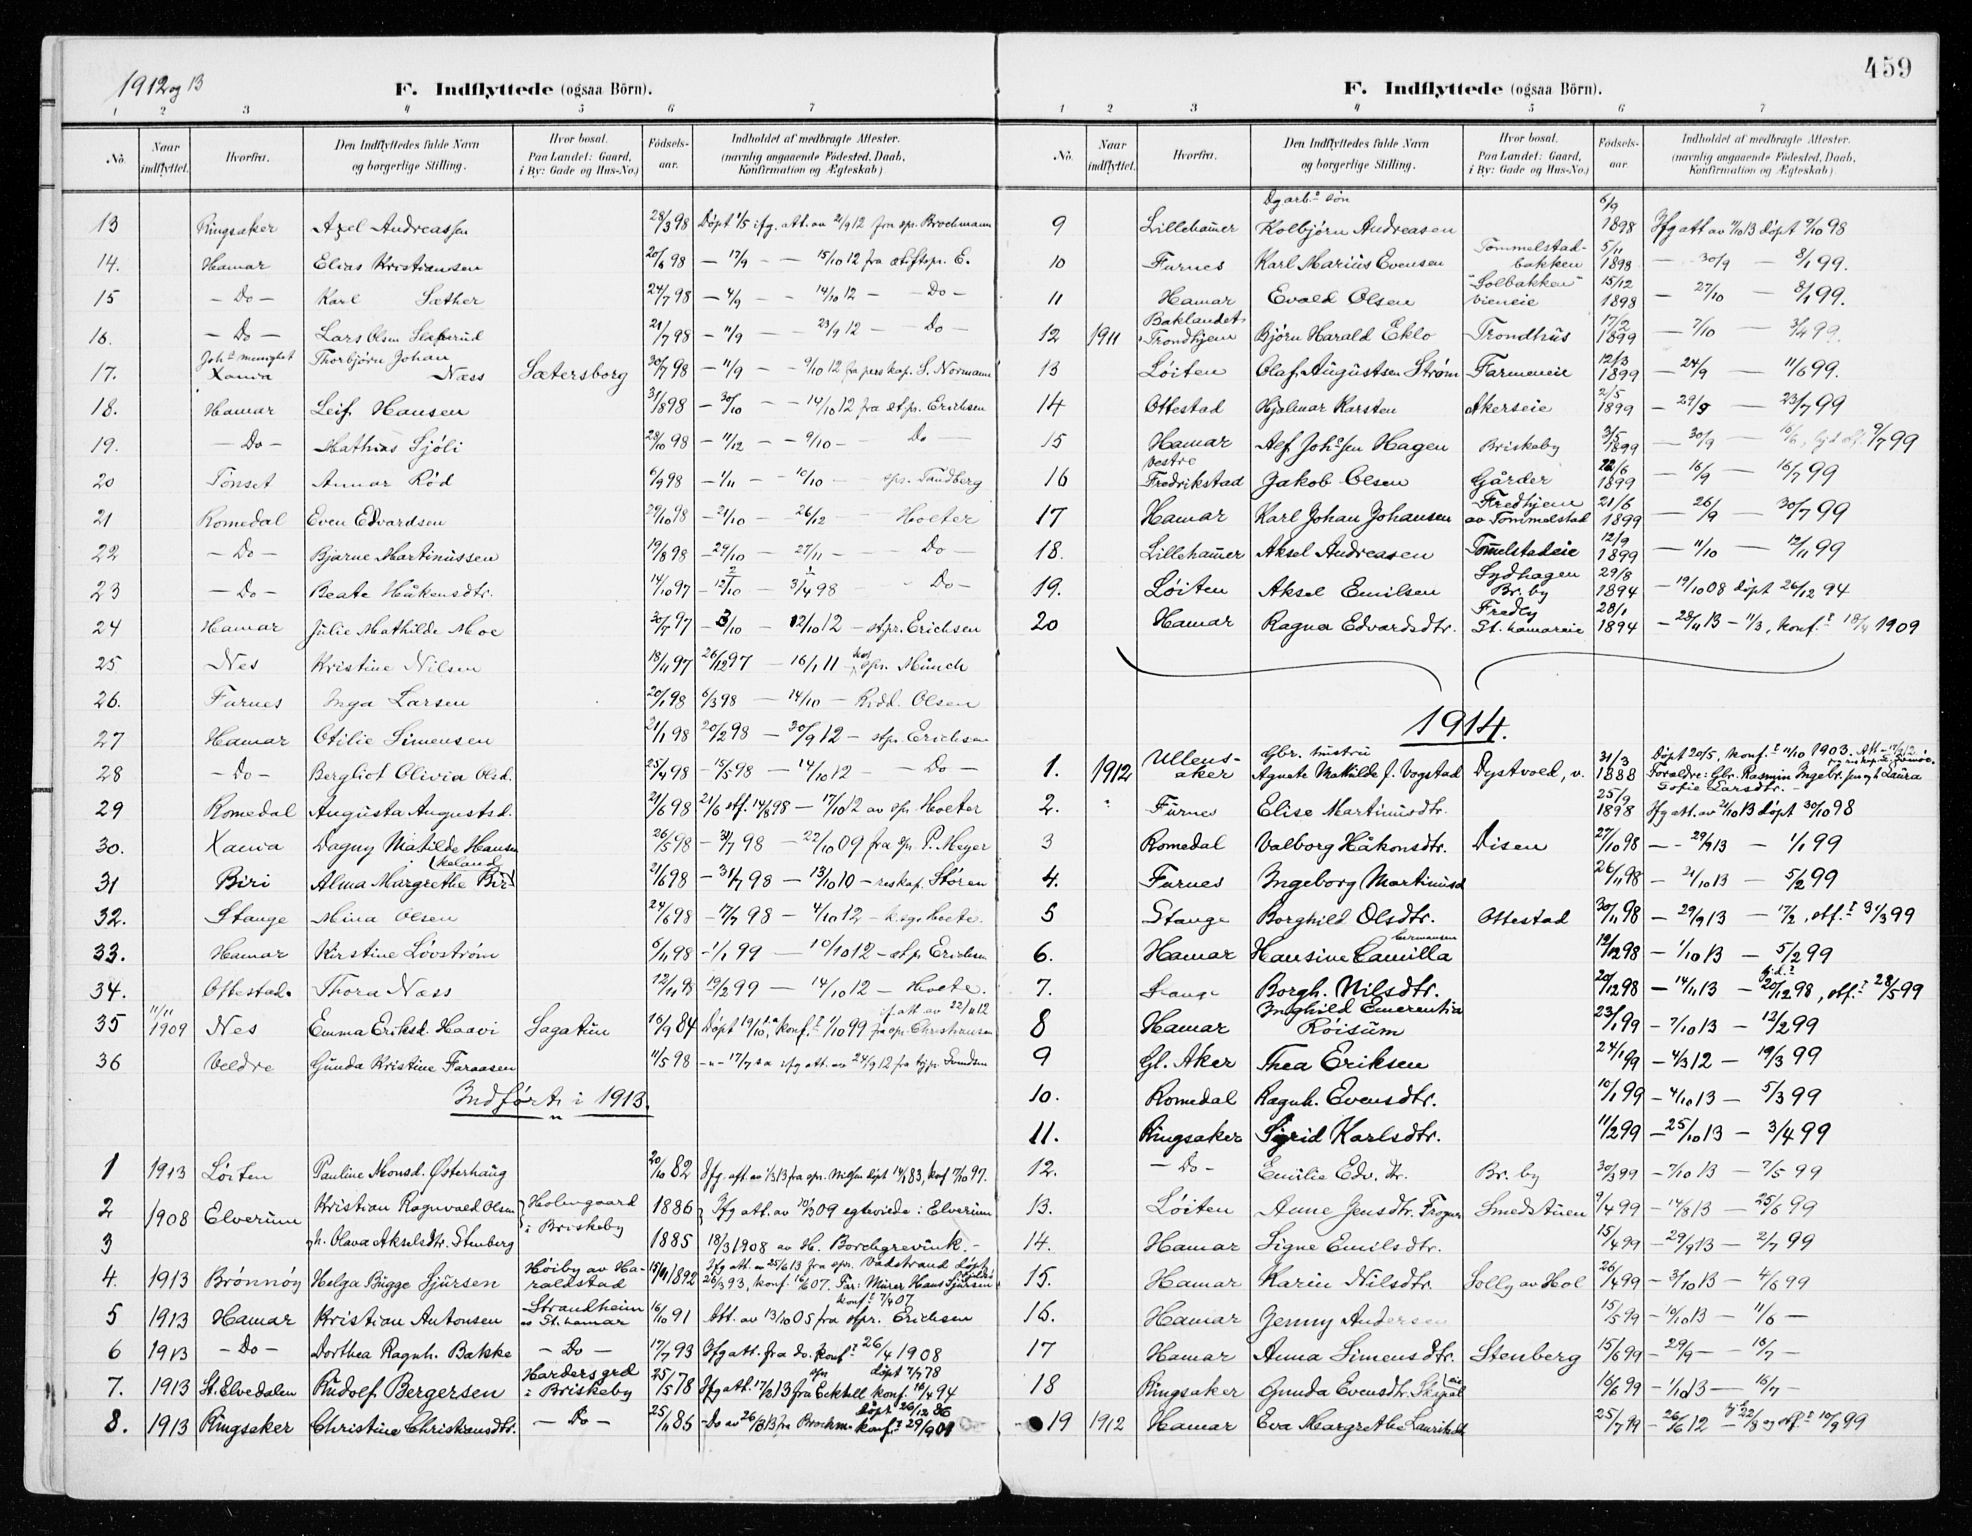 1912 og 13
F. Indflyttede (ogsaa Börn).
1 2 3 4 5 6 7
No. Naar indflyttet. Hvorfra. Den Indflyttedes fulde Navn og borgerlige Stilling. Hvor bosat. Paa Landet: Gaard, i By: Gade og Hus-No.) Födsels-aar. Indholdet af medbragte Attester. (navnlig angaaende Födested, Daab, Konfirmation og Ægteskab)
13 Ringsaker Axel Andreassen 28/3 98 Døpt 1/5 ifg. att. av 2/9 12 fra spr. Brochmann
14. Hamar Elias Kristiansen 20/6 98 — 17/9 — — 15/10 12 fra stiftspr. E.
15 — Do — Karl Sæther 24/7 98 — 4/9 — — 14/10 12 — — Do —
16. — Do — Lars Olsen 21/7 98 — 11/9 — — 23/9 12 — Do —
17. Joh.s menighet Xania Thorbjørn Johan Næss Sætersborg 30/7 98 — 11/9 — — 9/10 12 fra pers. kap. S. Normann
18. Hamar Leif Hansen 31/8 98 — 30/10 — — 14/10 12 fra stpr. Erichsen
19. — Do — Mathias Sjöli 23/10 98 — 11/12 — — 9/10 — Do —
20 Tönset Annar Röd 6/9 98 — 1/11 — 10/10 — spr. Sandberg
21 Romedal Even Edvardsen 29/10 98 — 21/10 — 26/12 — Hoeter
22 — Do — Bjarne Martinussen 19/8 98 — 29/10 — 27/11 — Do —
23 — Do — Beate Håkensdtr. 14/10 97 — 12/10 — 3/4 98 — Do —
24 Hamar Julie Mathilde Moe 30/7 97 — 3/10 — 12/10 12 — stpr. Erichsen
25 Nes Kristine Nilsen 18/11 97 26/12 97 — 16/1 11 — spr. Münch
26. Furnes Inga Larsen 20/1 98 6/3 98 — 14/10 — Ridd. Olsen
27 Hamar Otilie Simensen 21/1 98 20/2 98 — 30/9 12 — stpr. Erichsen
28 — Do — Bergliot Olivia Olsd. 25/4 98 — 15/5 98 — 14/10 12 — — Do —
29 Romedal Augusta Augustsd. 21/6 98 21/6 stf. 14/8 98 — 17/10 12 av spr. Hoeter
30. Xania Dagny Matilde Hansen 26/5 98 — 31/7 98 — 22/10 09 fra spr. P. Meyer
31 Biri Alma Margrethe 21/6 98 — 31/7 98 — 13/10 10 — res. kap. Stören
32. Stange Mina Olsen 24/6 98 — 17/7 98 — 4/10 12 —
33. Hamar Kirstine Lövström 6/11 98 — 1/1 99 — 10/10 12 — stpr Erichsen
34. Ottestad. Thora Næss 12/11 98 19/2 99 — 14/10 12 — Hoete.
35 11/11 1909 Nes Emma Eriksd. Haavi Sagatun 16/9 84 Døpt 19/10 s.a. konf.t 1/10 99 ifg att. av 22/11 12 fra spr. Christiansen
36 Veldre Gunda Kristine Faraasen 11/5 98 — " — 17/7 s.a. ifg att. av 24/9 12 fra
Indført i 1913.
1 1913 Löiten Pauline Monsd. Østerhaug 20/10 82 Ifg. att. av 1/3 13 fra spr. Nilsen døpt 14/1 83, konf 7/10 97.
2 1908 Elverum Kristian Ragnvald Olsen Holmgaard i Briskeby 1886 Ifg att. av 10/3 09 egteviede i Elverum
3 h. Olava Akselsdtr. Stenberg 1885 18/3 1908 av H. Borchgrevink. —
4. 1913 Brönnöy Helga Bugge Sjursen Höiby av Haraldstad 15/1 1892 Ifg att. av 25/6 13 fra spr. Vadstrand døpt 26/3 93, konf. 14/6 07. Far: Murer Hans Sjursen
5 1913 Hamar Kristian Antonsen Strandheim av St. hamar 16/10 91 konf.t 7/4 07 Att. av 13/10 05 fra stpr. Erichsen
6 1913 — Do — Dorthea Ragnh. Bakke — Do — 17/7 93 Ifg att. fra do. konf.t 26/4 1908
7. 1913 St. Elvedalen Rudolf Bergersen Hardersgrd i Briskeby 25/5 78 Ifg att. 17/2 13 fra spr. døpt 7/7 78 konf. 10/4 94
8. 1913 Ringsaker Christine Christiansdtr. — Do — 25/11 86 — Do av 26/8 13 fra Brochm. døpt 26/12 86 konf.t 29/9 01
459
F. Indflyttede (ogsaa Börn).
1 2 3 4 5 6 7
No. Naar indflyttet. Hvorfra. Den Indflyttedes fulde Navn og borgerlige Stilling. Hvor bosat. Paa Landet: Gaard, i By: Gade og Hus-No.) Födsels-aar. Indholdet af medbragte Attester. (navnlig angaaende Födested, Daab, Konfirmation og Ægteskab)
9 Lillehamer Dgarb.s sön Kolbjørn Andreasen 6/9 1898 Ifg att av 11/10 13 døpt 9/10 98
10 Furnes Karl Marius Evensen Tommelstad-bakken 5/11 1898 — 30/9 — 8/1 99.
11 Hamar Evald Olsen "Solbakken" Vieneie 15/12 1898 — 27/10 — 8/1 99.
12 1911 Baklandet, Trondhjem Björn Harald Eklo Trondhus 17/2 1899 — 7/10 — 3/4 99.
13 Löiten Olaf Augustsen Ström Farmeneie 12/3 1899 — 24/9 — 11/6 99.
14 Ottestad Hjalmar Karsten Akerseie 2/5 1899 — 29/9 — 23/7 99
15 Hamar Alf Johs.sen Hagen Briskeby 3/5 1899 — 30/9 — 9/7 99
16 Vestre Fredrikstad Jakob Olsen Gårder 22/6 1899 — 16/9 — 16/7 99
17 Hamar Karl Johan Johansen Fredhjem av Tommelstad 21/6 1899 — 26/9 — 30/7 99
18. Lillehamer Aksel Andreasen Tommelstadeie 12/9 1899 — 11/10 — 12/11 99
19. Löiten Aksel Emilsen Sydhagen Br. by 29/8 1894 — 19/10 08 døpt 26/12 94
20 Hamar Ragna Edvardsdtr. Fredly St. hamareie 28/1 1894 — 28/11 13 — 11/3, konf.t 18/4 1909
1914.
1. 1912 Ullensaker Gbr. hustru Agnete Matilde f. Vogstad Dystvold, v. 31/3 1888 Døpt 20/5, konf.t 11/10 1903. Foreldre: Gbr. Rasmus Ingebr.sen og h. Laura Sofie Larsdtr. —
2. " Furnes Elise Martinusdtr. 25/9 1898 Ifg att. av 2/10 13 døpt 30/10 98
3 Romedal Valborg Håkonsdtr. Disen 27/10 98 — — 29/9 13 — 1/1 99
4. Furnes Ingeborg Martinusd 26/11 98 — 2/10 13 — 5/2 99
5 Stange Borghild Olsdtr. Ottestad 30/11 98 — 29/9 13 — 17/2, stf.t 31/3 99
6. Hamar Hansine Camilla Hermansen 12/12 98 — 1/10 13 — 5/2 99
7. Stange Borgh. Nilsdtr. 20/12 98 — 14/11 13 — hj.d.t 20/12 98, stf.t 28/5 99
8 Hamar Inghild Emerentia Röisum 23/1 99 — 7/10 13 — 12/2 99
9 Gl. Aker Thea Eriksen 24/1 99 — 4/3 12 — 19/3 99
10. Romedal Ragnh. Evensdtr. 10/1 99 — 4/10 13 — 5/3 99
11. Ringsaker Sigrid Karlsdtr. 11/2 99 — 25/10 13 — 3/4 99
12. — Do — Emilie Edv. dr. Br. by 30/3 99 — 7/10 13 — 7/5 99
13. Löiten Anne Jensdtr. Smedstuen 9/4 99 — 14/8 13 — 25/6 99
14. Hamar Signe Emilsdtr. 15/4 99 — 29/9 13 — 2/7 99
15. Hamar Karin Nilsdtr. Solly av Hol 26/4 99 — 3/10 13 — 4/6 99
16. Hamar Jenny Andersen 15/5 99 — 10/10 13 — 11/6 —
17 Hamar Anna Simensdtr. Stenberg 15/6 99 — 29/9 — 16/7 —
18 Ringsaker Gunda Evensdtr. 16/6 99 — 1/10 13 — 16/7 —
19 1912 Hamar Eva Margrethe 25/7 99 — 26/6 12 — 22/8 og stf.t 10/9 99